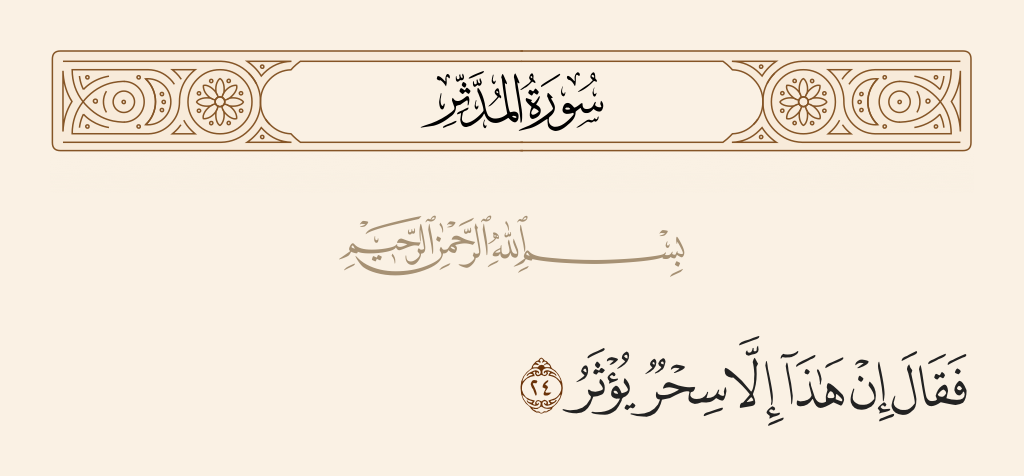 سُورَةُ المُدَّثِّرِ
بِسْمِ ٱللَّهِ ٱلرَّحْمَٰنِ ٱلرَّحِيمِ
فَقَالَ إِنْ هَٰذَآ إِلَّا سِحْرٌ يُؤْثَرُ ٢٤